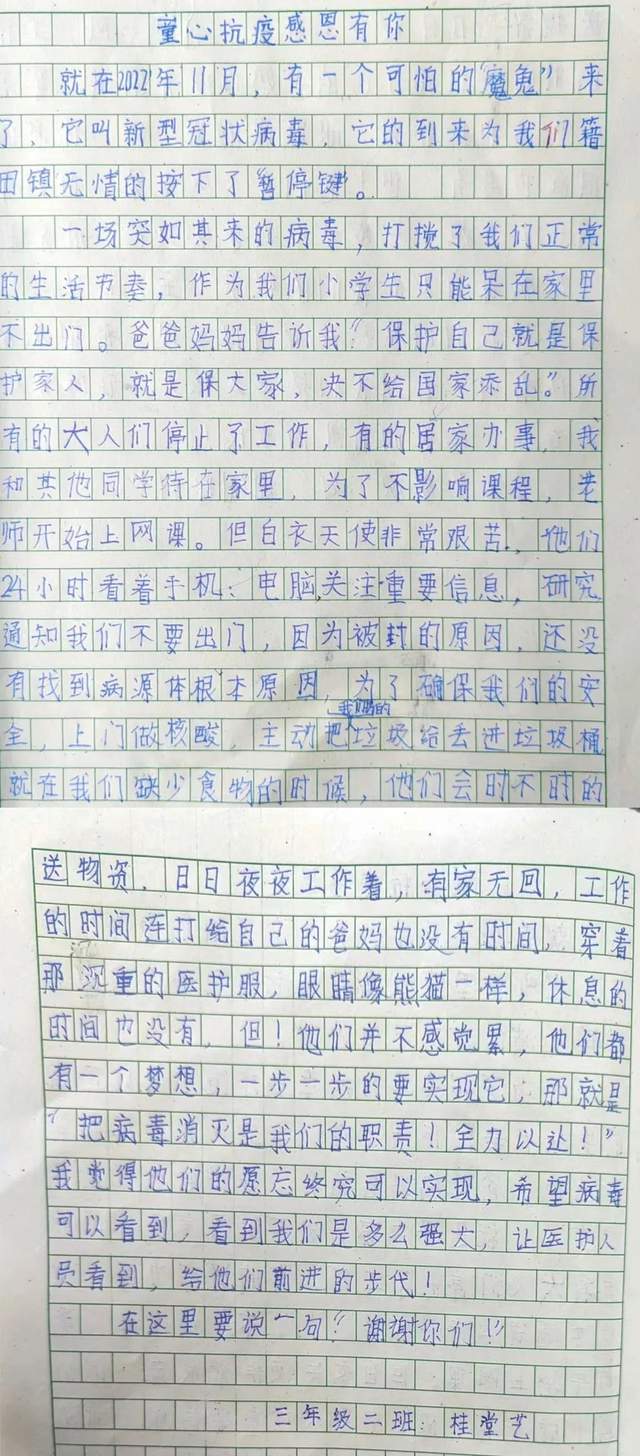 童心抗疫感恩有你
就在2022年11月，有一个可怕的“魔鬼”来
了，它叫新型冠状病毒，它的到来为我们籍
田镇无情的按下了“暂停键”。
一场突如其来的病毒，打搅了我们正常
的生活节奏，作为我们小学生只能呆在家里
不出门。爸爸妈妈告诉我“保护自己就是保
护家人，就是保大家，决不给国家添乱。”所
有的大人们停止了工作，有的居家办事，我
和其他同学待在家里，为了不影响课程，老
师开始上网课。但白衣天使非常艰苦，他们
24小时看着手机、电脑，关注重要信息，研究
通知我们不要出门，因为被封的原因，还没
有找到病源体根本原因，为了确保我们的安
我们的
全，上门做核酸，主动把垃圾给丢进垃圾桶
就在我们缺少食物的时候，他们会时不时的
送物资，日日夜夜工作着，有家无回，工作
的时间连打给自己的爸妈也没有时间，穿着
那沉重的医护服，眼睛像熊猫一样，休息的
时间也没有，但！他们并不感觉累，他们都
有一个梦想，一步一步的要实现它，那就是
“把病毒消灭是我们的职责！全力以赴！”
我觉得他们的愿忘终究可以实现，希望病毒
可以看到，看到我们是多么强大，让医护人
员看到，给他们前进的步代！
在这里要说一句“谢谢你们！”
三年级二班：桂堂艺